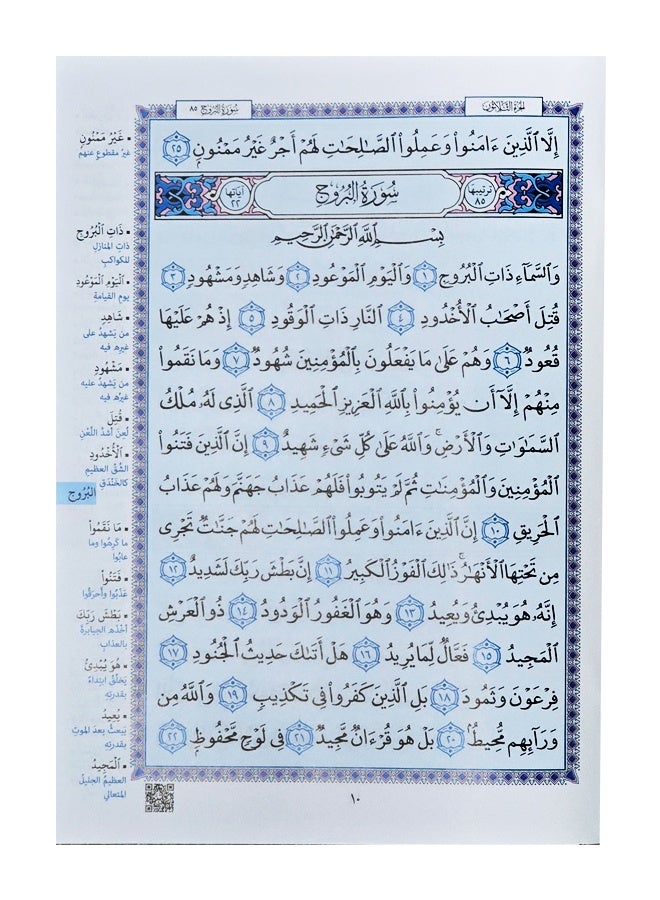 الجزء الثلاثون
سورة البروج ٨٥
إِلَّا ٱلَّذِينَ ءَامَنُوا۟ وَعَمِلُوا۟ ٱلصَّـٰلِحَـٰتِ لَهُمْ أَجْرٌ غَيْرُ مَمْنُونٍۭ ٢٥
ترتيبها ٨٥
سُورَةُ الْبُرُوجِ
آياتها ٢٢
بِسْمِ ٱللَّهِ ٱلرَّحْمَـٰنِ ٱلرَّحِيمِ
وَٱلسَّمَآءِ ذَاتِ ٱلْبُرُوجِ ١ وَٱلْيَوْمِ ٱلْمَوْعُودِ ٢ وَشَاهِدٍ وَمَشْهُودٍ ٣
قُتِلَ أَصْحَـٰبُ ٱلْأُخْدُودِ ٤ ٱلنَّارِ ذَاتِ ٱلْوَقُودِ ٥ إِذْ هُمْ عَلَيْهَا
قُعُودٌ ٦ وَهُمْ عَلَىٰ مَا يَفْعَلُونَ بِٱلْمُؤْمِنِينَ شُهُودٌ ٧ وَمَا نَقَمُوا۟
مِنْهُمْ إِلَّآ أَن يُؤْمِنُوا۟ بِٱللَّهِ ٱلْعَزِيزِ ٱلْحَمِيدِ ٨ ٱلَّذِى لَهُۥ مُلْكُ
ٱلسَّمَـٰوَٰتِ وَٱلْأَرْضِ ۚ وَٱللَّهُ عَلَىٰ كُلِّ شَىْءٍ شَهِيدٌ ٩ إِنَّ ٱلَّذِينَ فَتَنُوا۟
ٱلْمُؤْمِنِينَ وَٱلْمُؤْمِنَـٰتِ ثُمَّ لَمْ يَتُوبُوا۟ فَلَهُمْ عَذَابُ جَهَنَّمَ وَلَهُمْ عَذَابُ
ٱلْحَرِيقِ ١٠ إِنَّ ٱلَّذِينَ ءَامَنُوا۟ وَعَمِلُوا۟ ٱلصَّـٰلِحَـٰتِ لَهُمْ جَنَّـٰتٌ تَجْرِى
مِن تَحْتِهَا ٱلْأَنْهَـٰرُ ۚ ذَٰلِكَ ٱلْفَوْزُ ٱلْكَبِيرُ ١١ إِنَّ بَطْشَ رَبِّكَ لَشَدِيدٌ ١٢
إِنَّهُۥ هُوَ يُبْدِئُ وَيُعِيدُ ١٣ وَهُوَ ٱلْغَفُورُ ٱلْوَدُودُ ١٤ ذُو ٱلْعَرْشِ
ٱلْمَجِيدُ ١٥ فَعَّالٌ لِّمَا يُرِيدُ ١٦ هَلْ أَتَىٰكَ حَدِيثُ ٱلْجُنُودِ ١٧
فِرْعَوْنَ وَثَمُودَ ١٨ بَلِ ٱلَّذِينَ كَفَرُوا۟ فِى تَكْذِيبٍ ١٩ وَٱللَّهُ مِن
وَرَآئِهِم مُّحِيطٌۢ ٢٠ بَلْ هُوَ قُرْءَانٌ مَّجِيدٌ ٢١ فِى لَوْحٍ مَّحْفُوظٍۭ ٢٢
▪ غَيْرُ مَمْنُونٍ
غيرُ مقطوعٍ عنهم
▪ ذَاتِ الْبُرُوجِ
ذاتِ المنازلِ
للكواكبِ
▪ الْيَوْمِ الْمَوْعُودِ
يومِ القيامةِ
▪ شَاهِدٍ
من يَشهدُ على
غيرِه فيه
▪ مَشْهُودٍ
من يَشهدُ عليه
غيرُه فيه
▪ قُتِلَ
لُعِنَ أشدَّ اللَّعْنِ
▪ الْأُخْدُودِ
الشَّقِّ العظيمِ
كالخَنْدَقِ
البُرُوج
▪ مَا نَقَمُوا۟
ما كَرِهُوا وما
عابُوا
▪ فَتَنُوا۟
عذَّبُوا وأحرقُوا
▪ بَطْشَ رَبِّكَ
أخْذَه الجبابرةَ
بالعذابِ
▪ هُوَ يُبْدِئُ
يَخلُقُ ابتداءً
بقدرتِه
▪ يُعِيدُ
يَبعثُ بعدَ الموتِ
بقدرتِه
▪ الْمَجِيدُ
العظيمُ الجليلُ
المتعالي
١٠